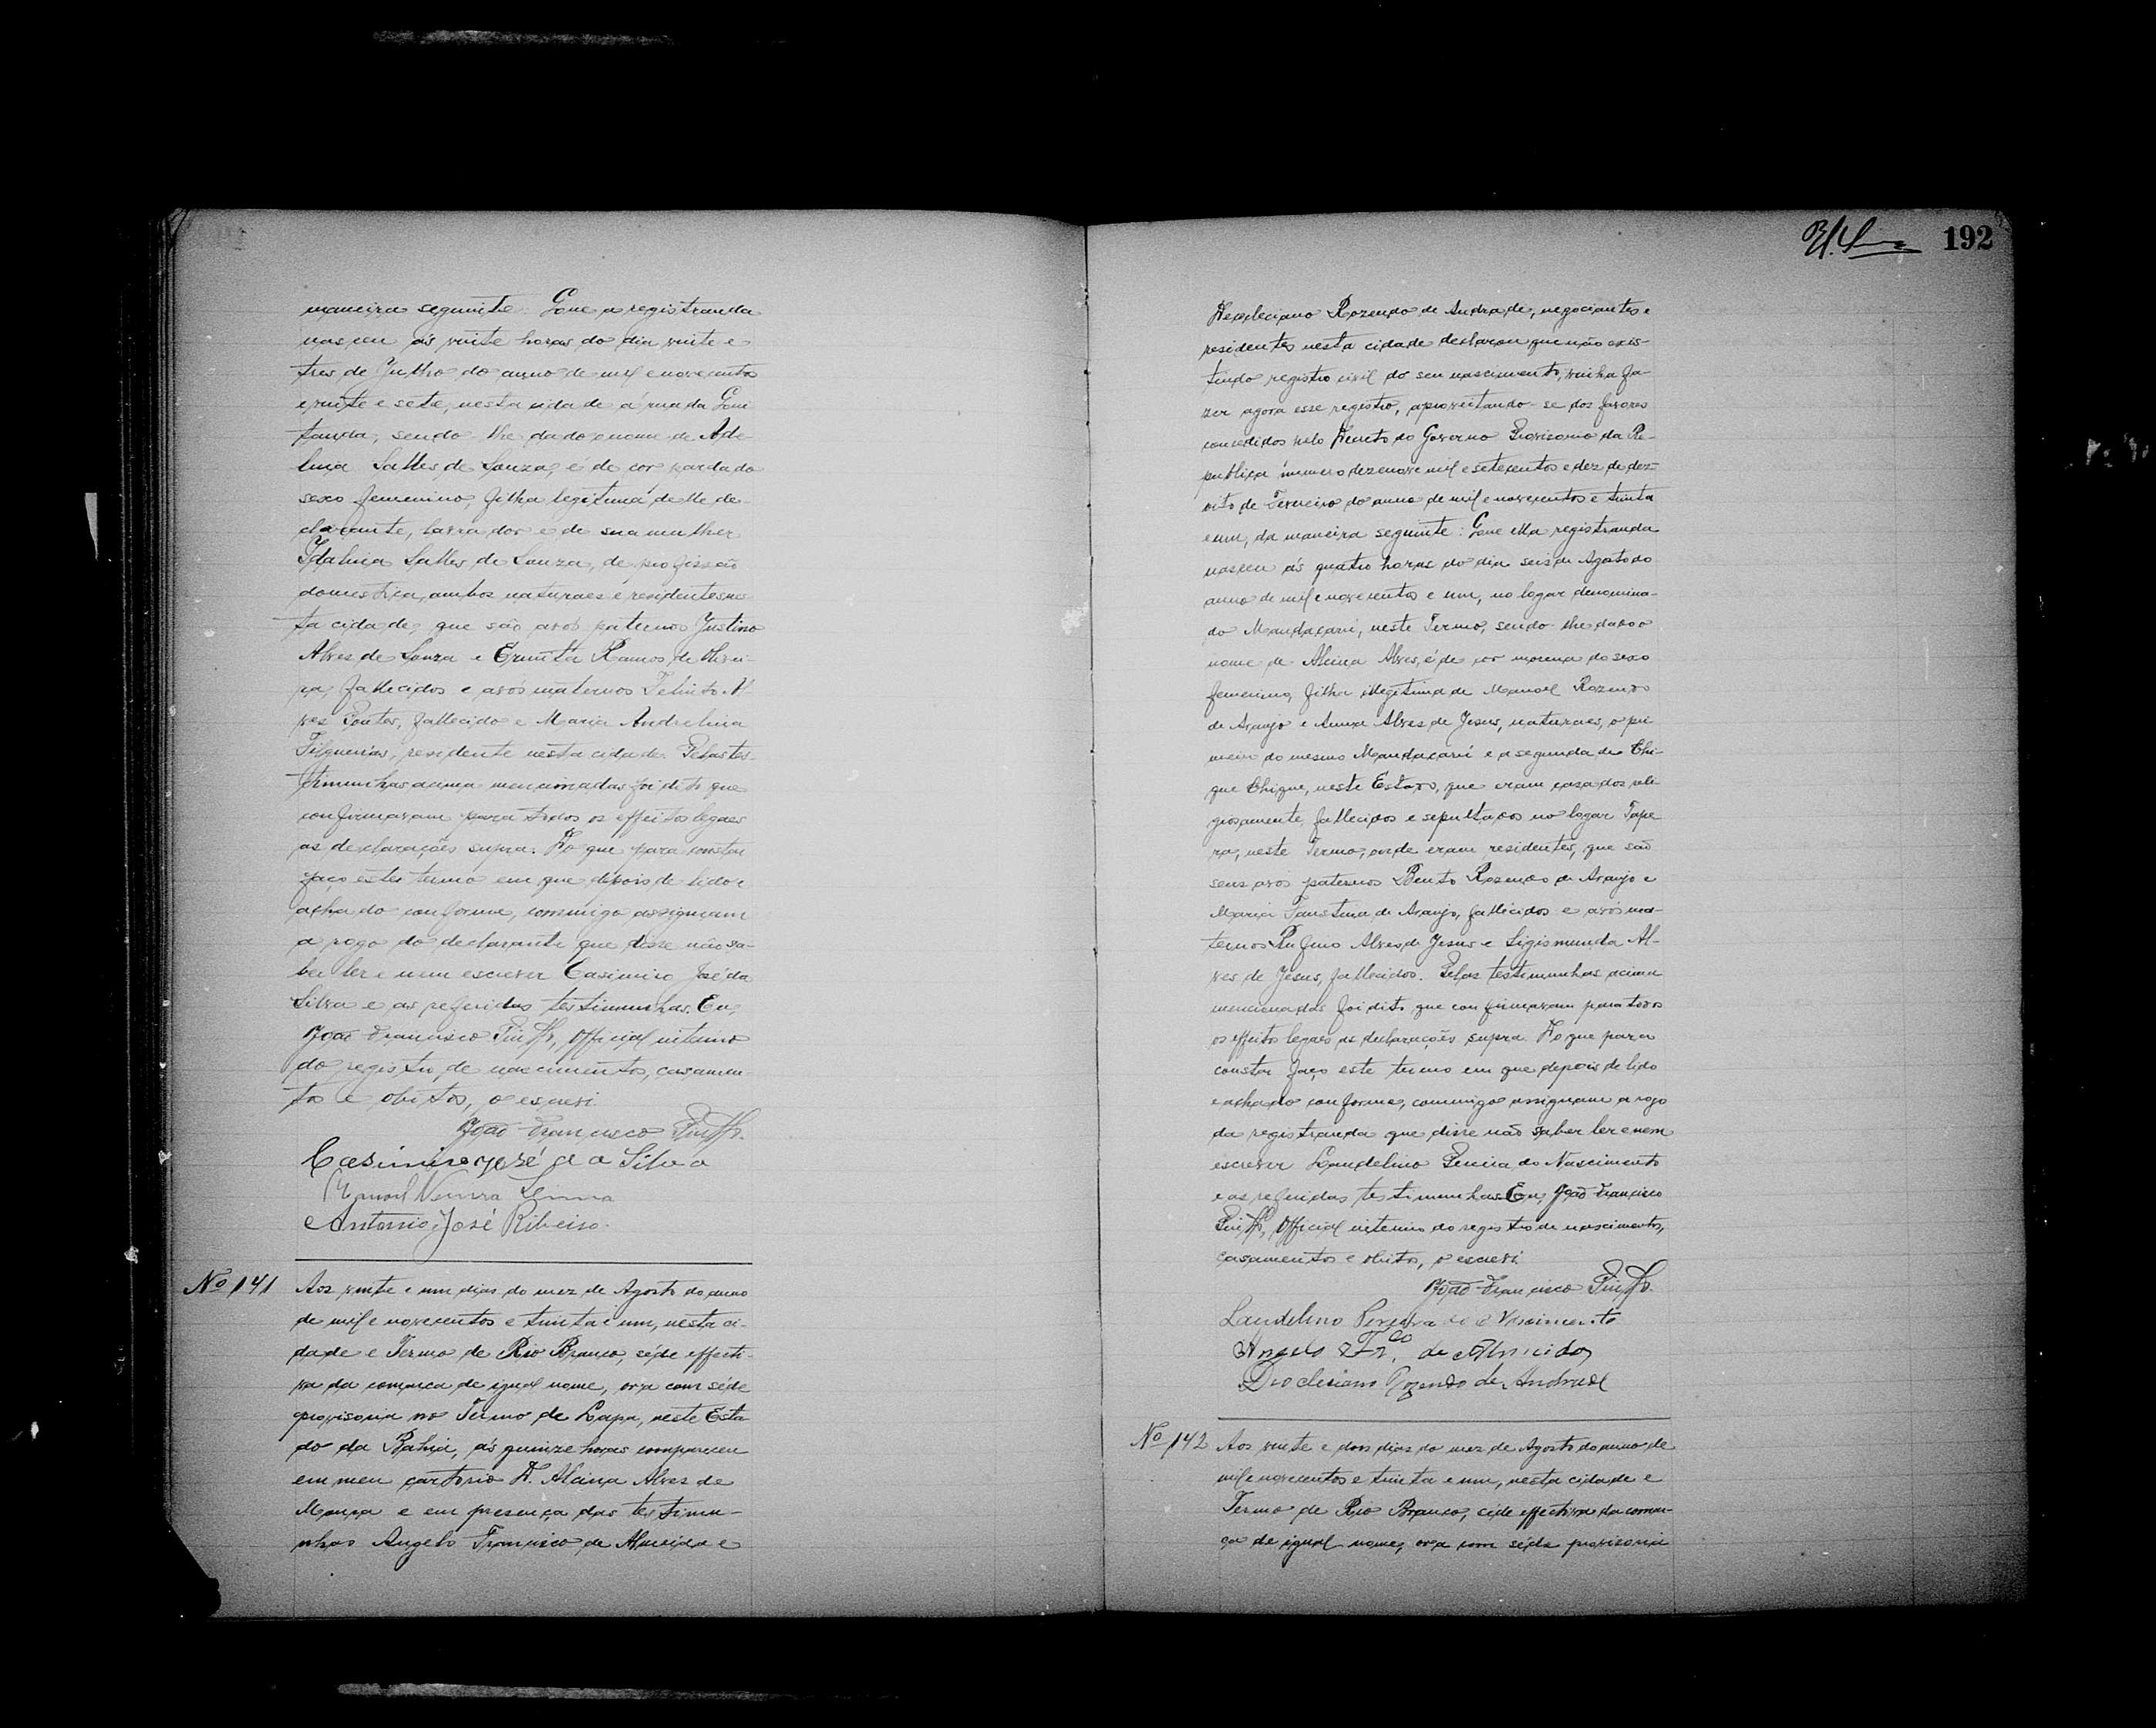 maneira seguinte: Que a registranda
nasceu ás vinte horas do dia vinte e
tres de Julho do anno de mil e novecentos
e vinte e sete, nesta cidade á rua da Qui
tanda, sendo-lhe dado o nome de Ade-
lina Salles de Souza, é de cor parda do
sexo femenino, filha legitima delle de-
clarante, lavrador e de sua mulher
Idalina Salles de Souza, de profissão
domestica, ambos naturaes e residentes nes-
ta cidade, que são avós paternos Justino
Alves de Souza e Ermita Ramos de Olivei-
ra, fallecidos e avós maternos Felinto Al
ves Pontes, fallecido e Maria Andrelina
Filgueiras, residente nesta cidade. Pelas tes-
timunhas acima mencionadas foi dito que
confirmavam para todos os effeitos legaes
as declarações supra. Do que para constar
faço este termo em que depois de lido e
achado conforme, commigo assignam
a rogo do declarante que disse não sa-
ber ler e nem escrever Casimiro José da
Silva e as referidas testimunhas. Eu,
João Francisco Pinto, Official interino
do registro de nascimentos, casamen-
tos e obitos, o escrevi.
João Francisco Pinto.
Casimiro José da Silva
Manoel Lima
Antonio José Ribeiro.
Nº 141 Aos vinte e um dias do mez de Agosto do anno
de mil e novecentos e trinta e um, nesta ci-
dade e Termo de Rio Branco, séde effecti-
va da comarca de igual nome, ora com séde
provisoria no Termo de Lapa, neste Esta
do da Bahia, ás quinze horas compareceu
em meu cartorio D. Alcina Alves de
Moura e em presença das testimu-
nhas Angelo Francisco de Almeida e
192
Deocleciano Rozendo de Andrade, negociantes e
residentes nesta cidade declarou que não exis-
tindo registro civil do seu nascimento, vinha fa-
zer agora esse registro, aproveitando-se dos favores
concedidos pelo Decreto do Governo Provisorio da Re-
publica numero dezenove mil e setecentos e dez de dez-
oito de Fevereiro do anno de mil e novecentos e trinta
e um, da maneira seguinte: Que ella registranda
nasceu ás quatro horas do dia seis de Agosto do
anno de mil e novecentos e um, no logar denomina-
do Mandacarú, neste Termo, sendo-lhe dado o
nome de Alcina Alves, é de cor morena do sexo
femenino, filha illegitima de Manoel Rozendo
de Araujo e Anna Alves de Jesus, naturaes, o pri
meiro do mesmo Mandacarú e a segunda de Chi-
que Chique, neste Estado, que eram casados reli-
giosamente, fallecidos e sepultados no logar Tape
ra, neste Termo, onde eram residentes, que são
seus avós paternos Bento Rozendo de Araujo e
Maria Faustina de Araujo, fallecidos e avós ma-
ternos Rufino Alves de Jesus e Sigismunda Al-
ves de Jesus, fallecidos. Pelas testimunhas acima
mencionadas foi dito que confirmavam para todos
os effeitos legaes as declarações supra. Do que para
constar faço este termo em que depois de lido
e achado conforme, commigo assignam a rogo
da registranda que disse não saber ler e nem
escrever Laudelino Pereira do Nascimento
e as referidas testimunhas. Eu, João Francisco
Pinto, Official interino do registro de nascimentos,
casamentos e obitos, o escrevi.
João Francisco Pinto.
Laudelino Pereira do Nascimento
Angelo Frco. de Almeida
Diocleciano Rozendo de Andrade
Nº 142 Aos vinte e dois dias do mez de Agosto do anno de
mil e novecentos e trinta e um, nesta cidade e
Termo de Rio Branco, séde effectiva da comar-
ca de igual nome, ora com séde provisoria